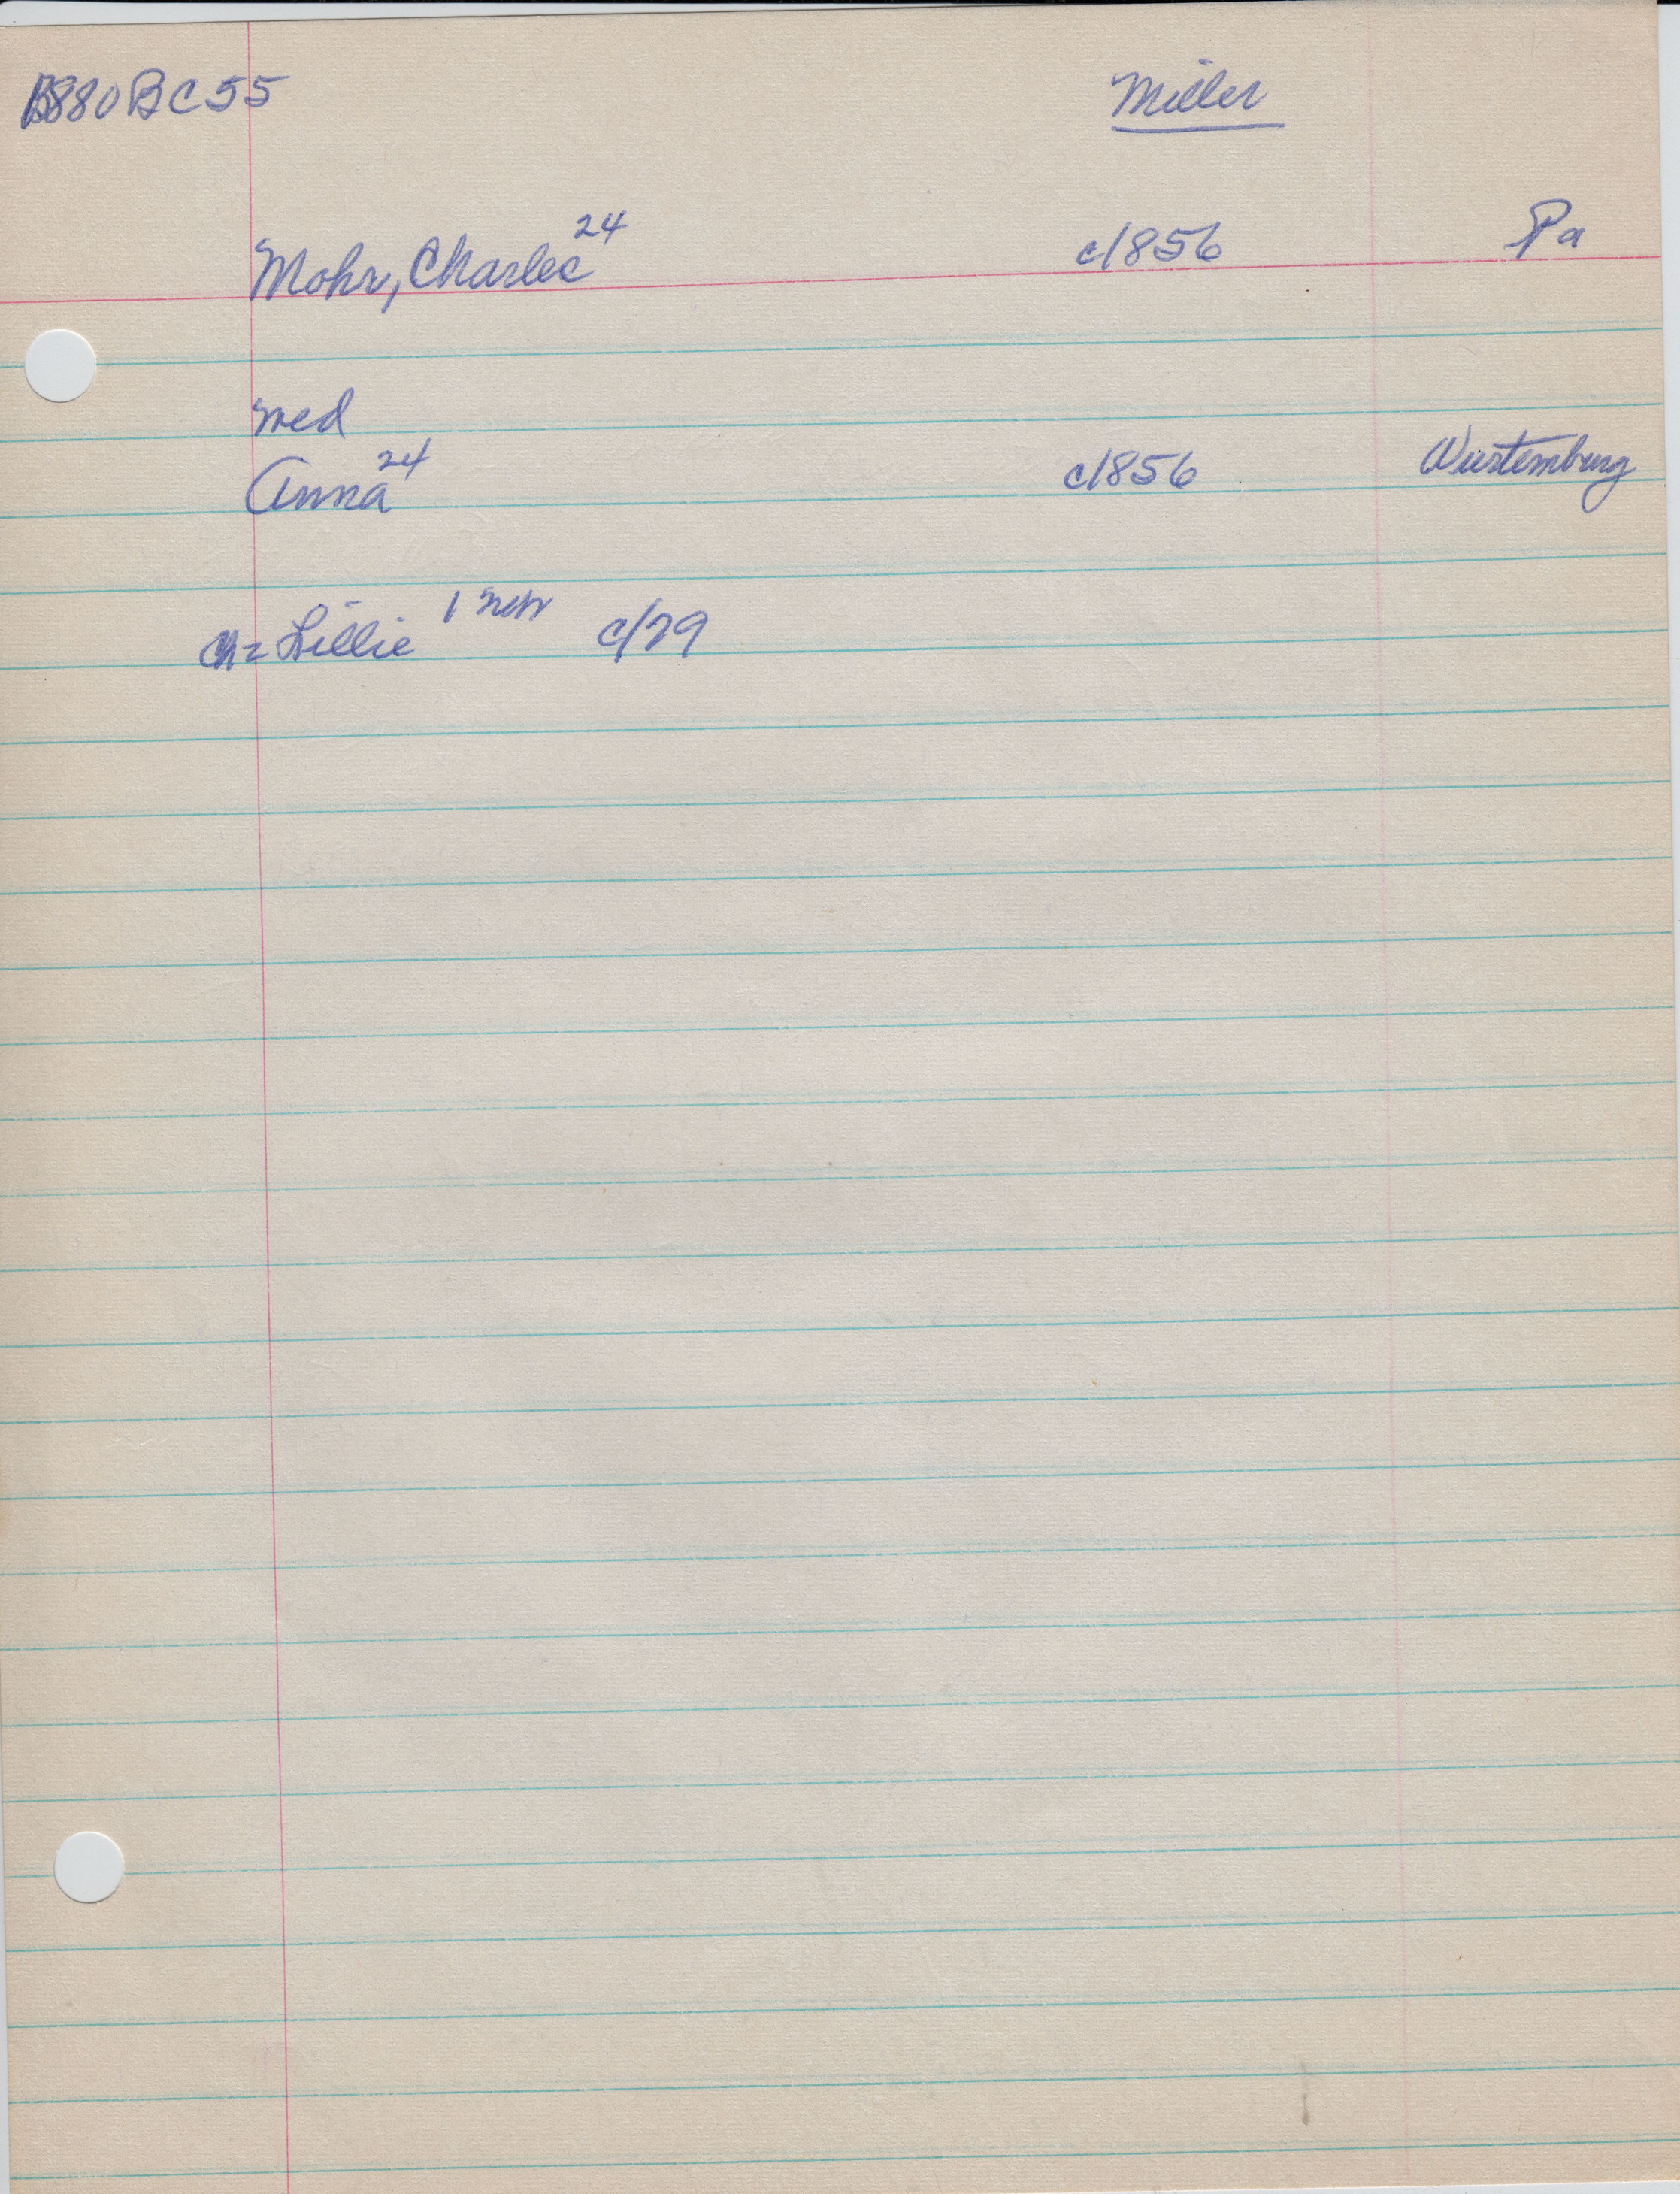 B880BC55 Miller
Mohr, Charles 24 c1856 Pa
med
Anna 24 c1856 Wurtemburg
ch= Lillie 1 c/79